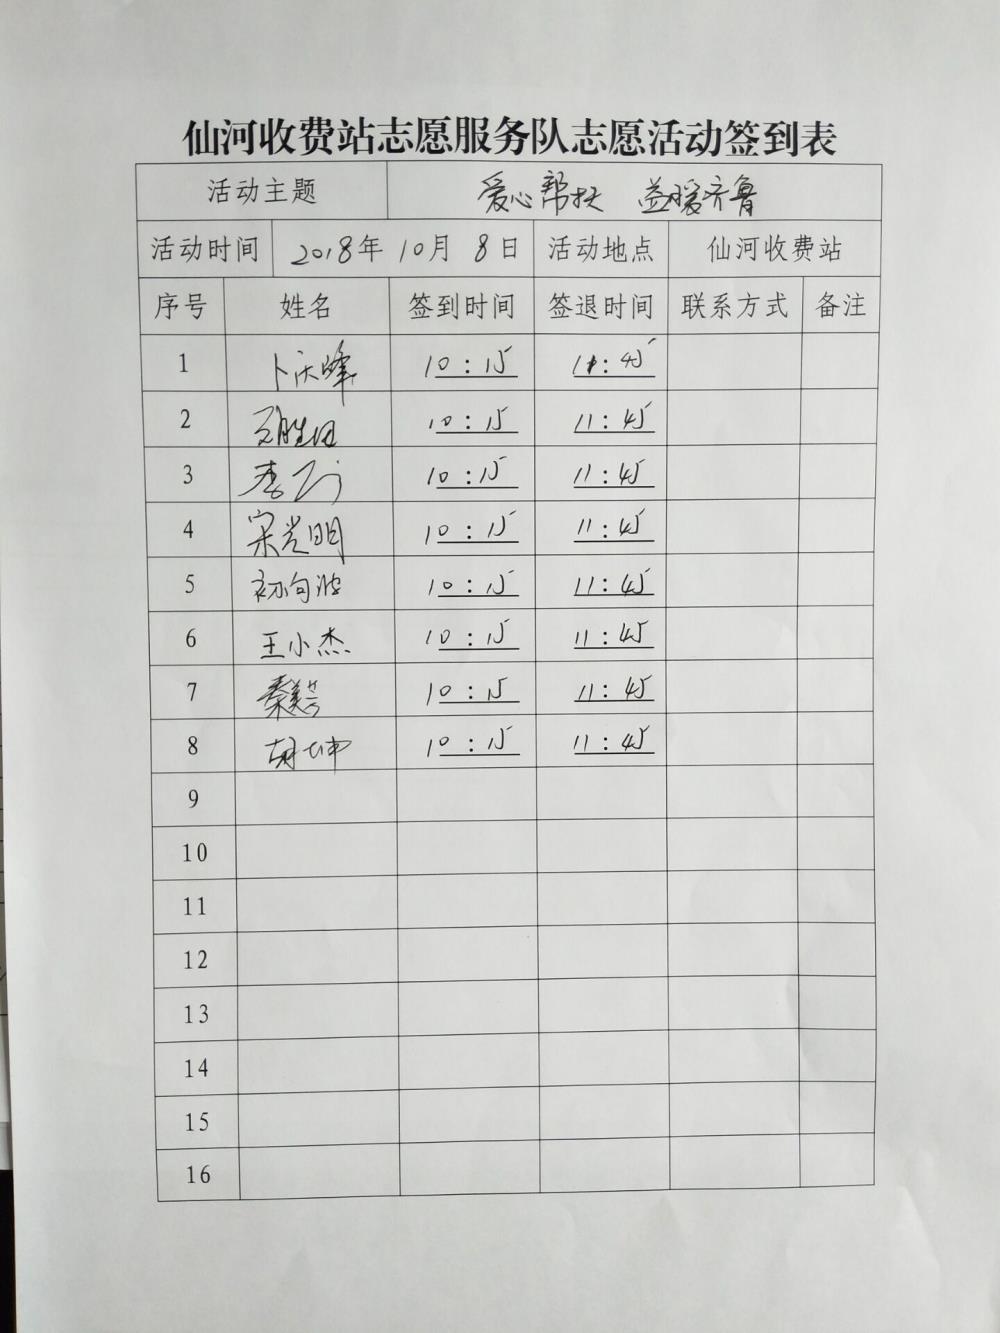 仙河收费站志愿服务队志愿活动签到表
活动主题 爱心帮扶 益暖齐鲁
活动时间 2018年 10月 8日 活动地点 仙河收费站
序号 姓名 签到时间 签退时间 联系方式 备注
1 卜庆峰 10:15 11:45
2 10:15 11:45
3 李 10:15 11:45
4 宋光明 10:15 11:45
5 初向波 10:15 11:45
6 王小杰 10:15 11:45
7 秦 10:15 11:45
8 胡坤 10:15 11:45
9
10
11
12
13
14
15
16